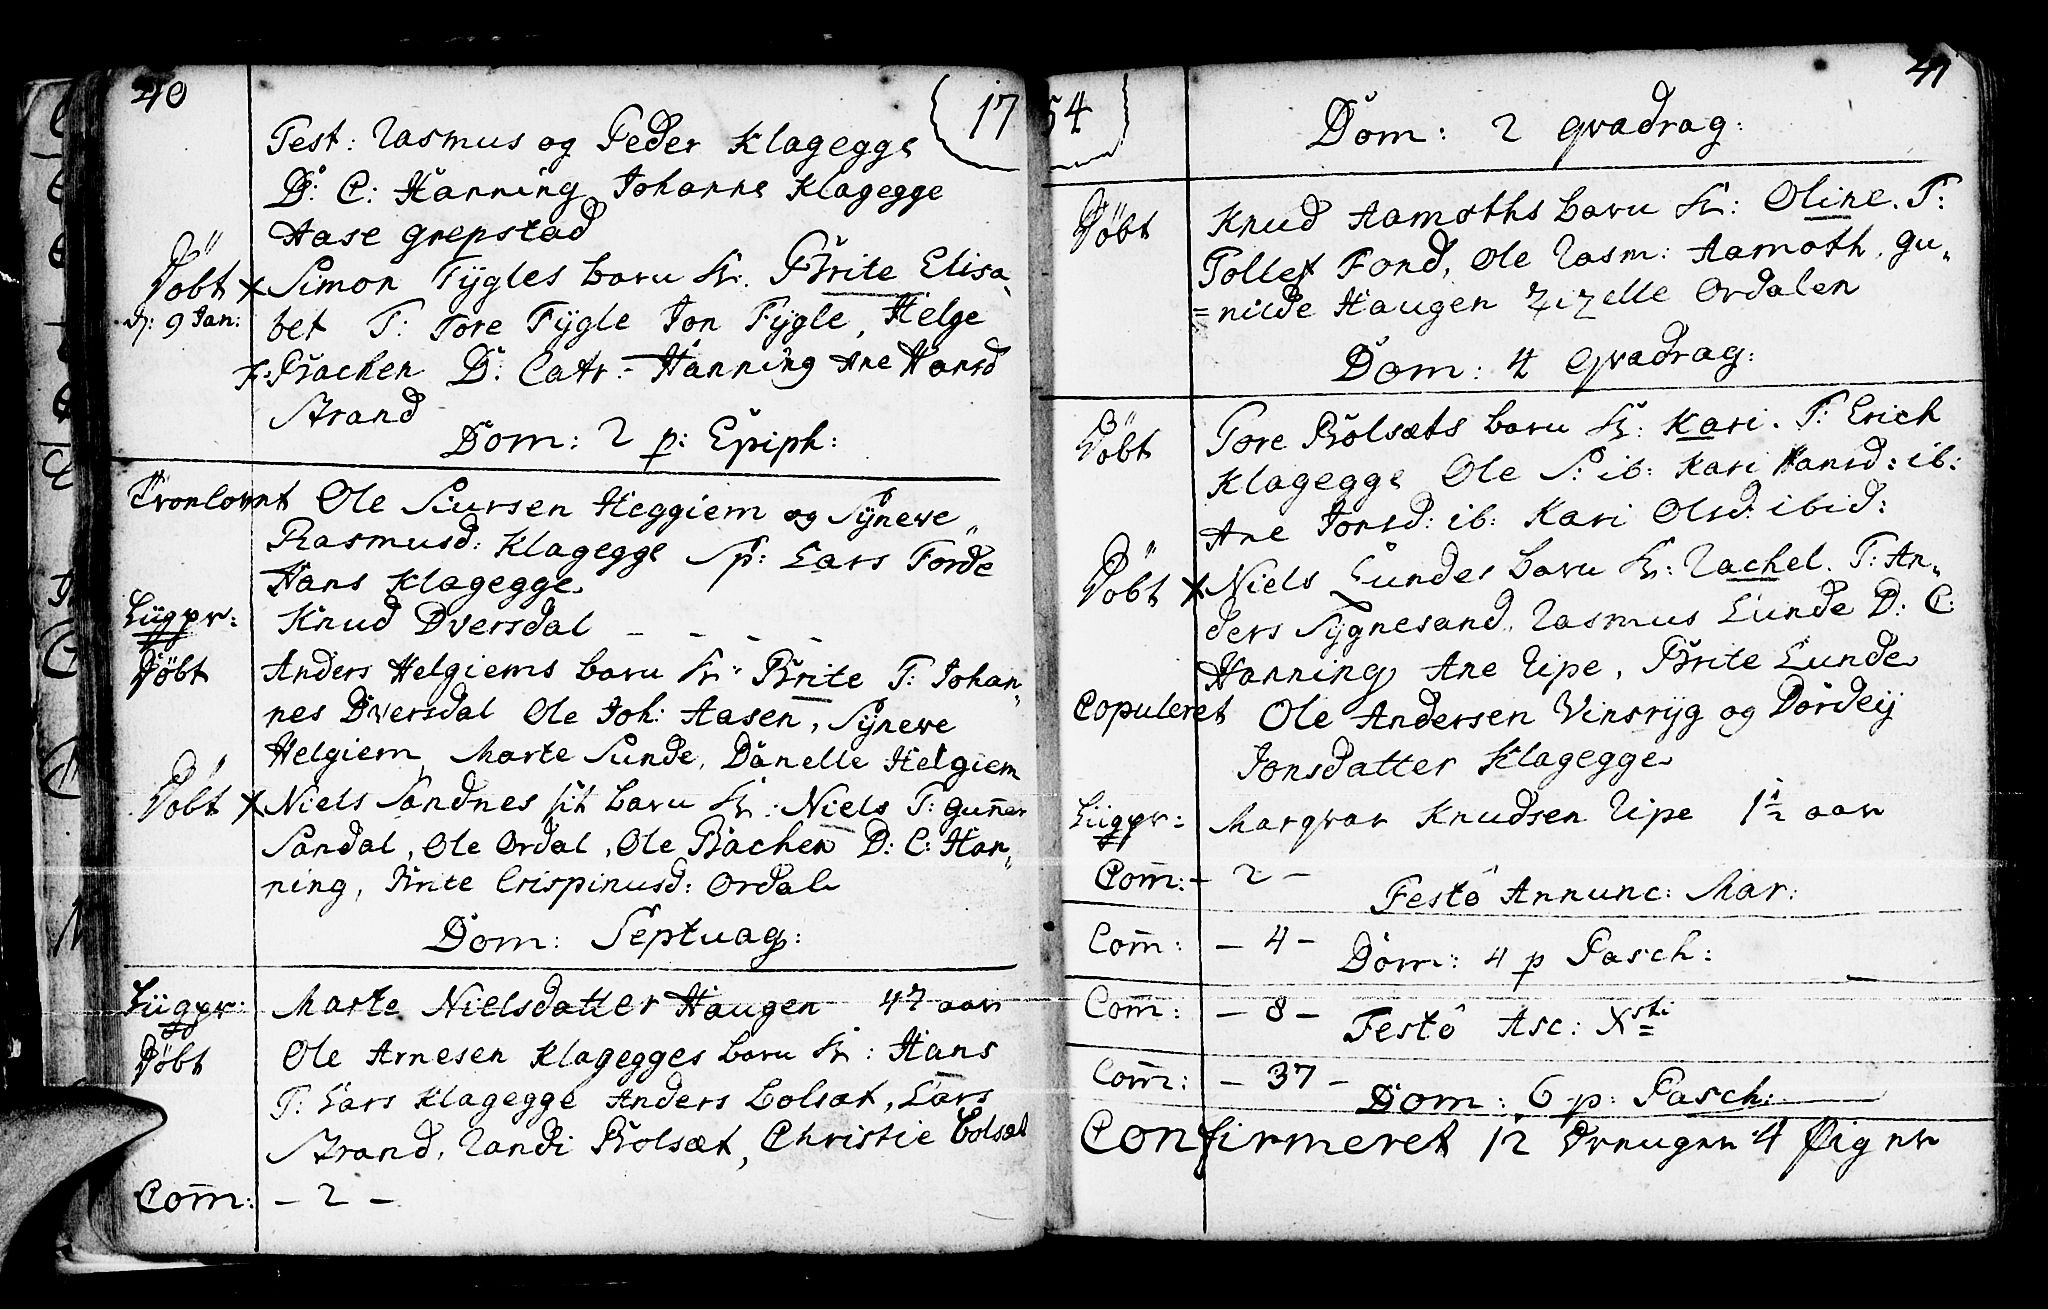 40
1754
Test: Rasmus og Peder Klagegge
D: C: Hanning Johanne Klagegge
Aase Grepstad
Döbt x Simon Tÿgles barn K: Brite Elisa-
d: 9 Jan: bet T: Tore Tÿgle Jon Tÿgle, Helge
Bachen D: Catr: Hanning Ane Hansd
Strand
Dom: 2 p: Epiph:
Trolovnt Ole Siursen Heggiem og Sÿneve
Rasmusd: Klagegge Sp: Lars Förde
Hans Klagegge
Liigpr: Knud Dversdal - - - -
Döbt Anders Helgiems barn K: Brite T: Johan-
nes Dversdal Ole Joh: Aasen, Sÿneve
Helgiem, Marte Sunde, Danelle Helgiem
Döbt x Niels Sandnes sit barn K: Niels T: Guner
Sandal, Ole Ordal, Ole Bachen D: C: Han-
ning, Brite Crispinusd: Ordal
Dom: Septuag:
Liigpr: Marte Nielsdatter Haugen 47 aar
Döbt Ole Arnesen Klagegges barn K: Hans
T: Lars Klagegge Anders Bolsæt, Lars
Strand, Randi Bolsæt, Christie Bolsæt
Com: - 2 -
41
Dom: 2 Qvadrag:
Döbt Knud Aamoths barn K: Oline. T:
Tollef Fond, Ole Rasm: Aamoth, Gu-
=nilde Haugen Zizelle Ordalen
Dom: 4 Qvadrag:
Döbt Tore Bolsæts barn K: Kari. T: Erich
Klagegge Ole S: ib: Kari Hansd: ib:
Ane Jonsd: ib: Kari Olsd: ibid:
Döbt x Niels Lundes barn K: Rachel. T: An-
ders Sÿgnesand, Rasmus Lunde D: C:
Hanning Ane Ripe, Brite Lunde
Copuleret Ole Andersen Vinsrÿg og Dordeij
Jonsdatter Klagegge
Liigpr: Margvar Knudsen Ripe 1½ aar
Com: - 2 -
Festo Annunc: Mar:
Com: - 4 -
Dom: 4 p Pasch:
Com: - 8 -
Festo Asc: Xsti
Com: - 37 -
Dom: 6 p: Pasch:
Confirmeret 12 Drenger 4 Piger